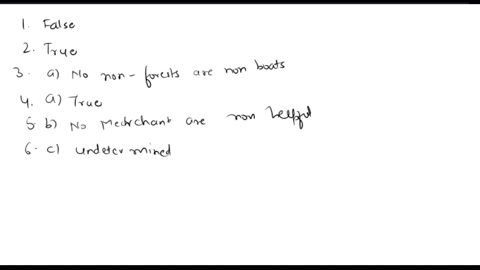 1. False
2. True
3. a) No non-forests are non boats
4. a) True
5. b) No Medrchant are non helpful
6. c) undetermined